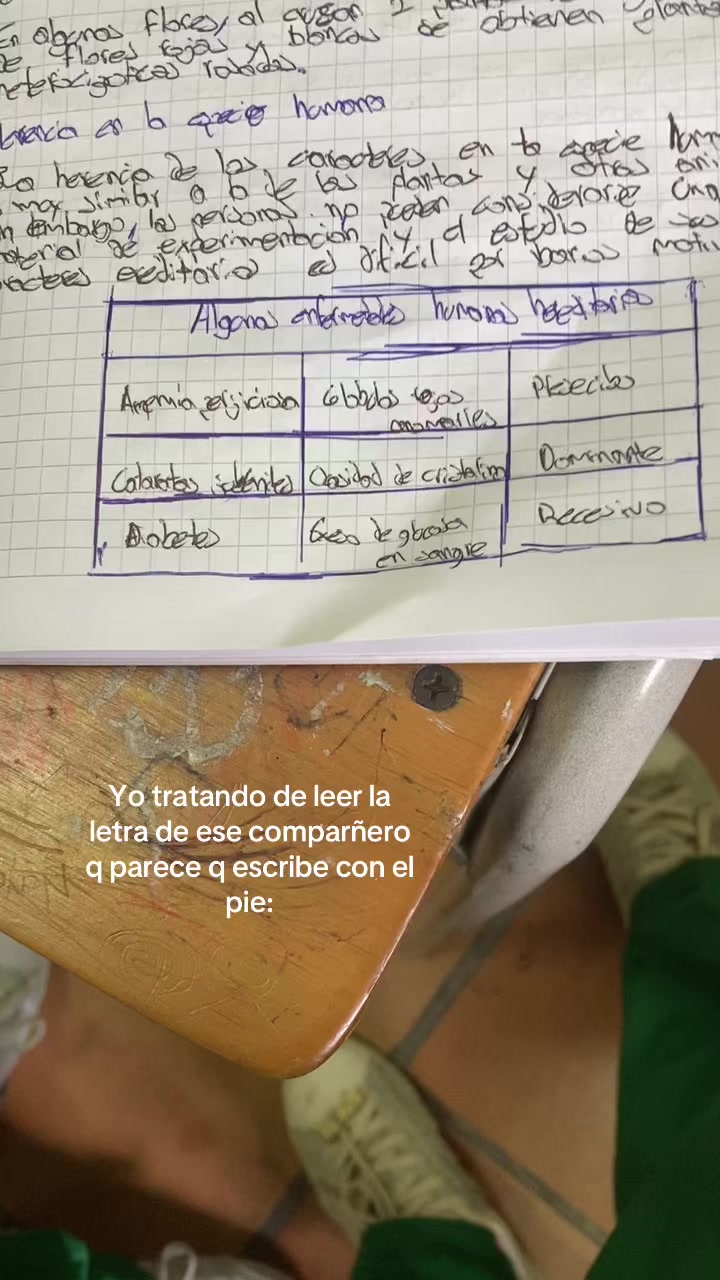 En algunas flores, al cruzar 2
de flores rojas y blancas se obtienen plantas
heterozigoticas rosadas.
herencia en la especie humana
La herencia de los caracteres en la especie hum
muy similar a la de las plantas y otros ani
in embargo, las personas no pueden considerarse como
material de experimentación y el estudio de sus
racteres ereditarios es dificil por barios motiv
Algunas enfermedades humanas hereditarias
Anemia perjiciosa Globulos rojos Recesibo
anormales
Cataratas Opasidad de cristalino Dominante
Diabetes Exeso de glucosa Recesivo
en sangre
Yo tratando de leer la
letra de ese comparñero
q parece q escribe con el
pie: